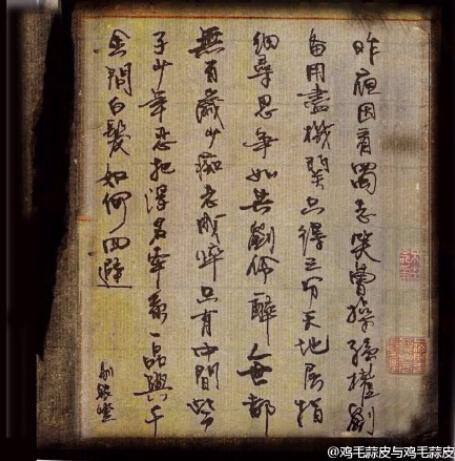 昨夜因看蜀志笑曹操孫權劉
備用盡機關只得三分天地屈指
細尋思争如共劉伶一醉人世都
無百歲少痴老成悴只有中間些
子少年忍把浮名牽系一品與千
金問白髮如何回避
剔銀燈
@鸡毛蒜皮与鸡毛蒜皮